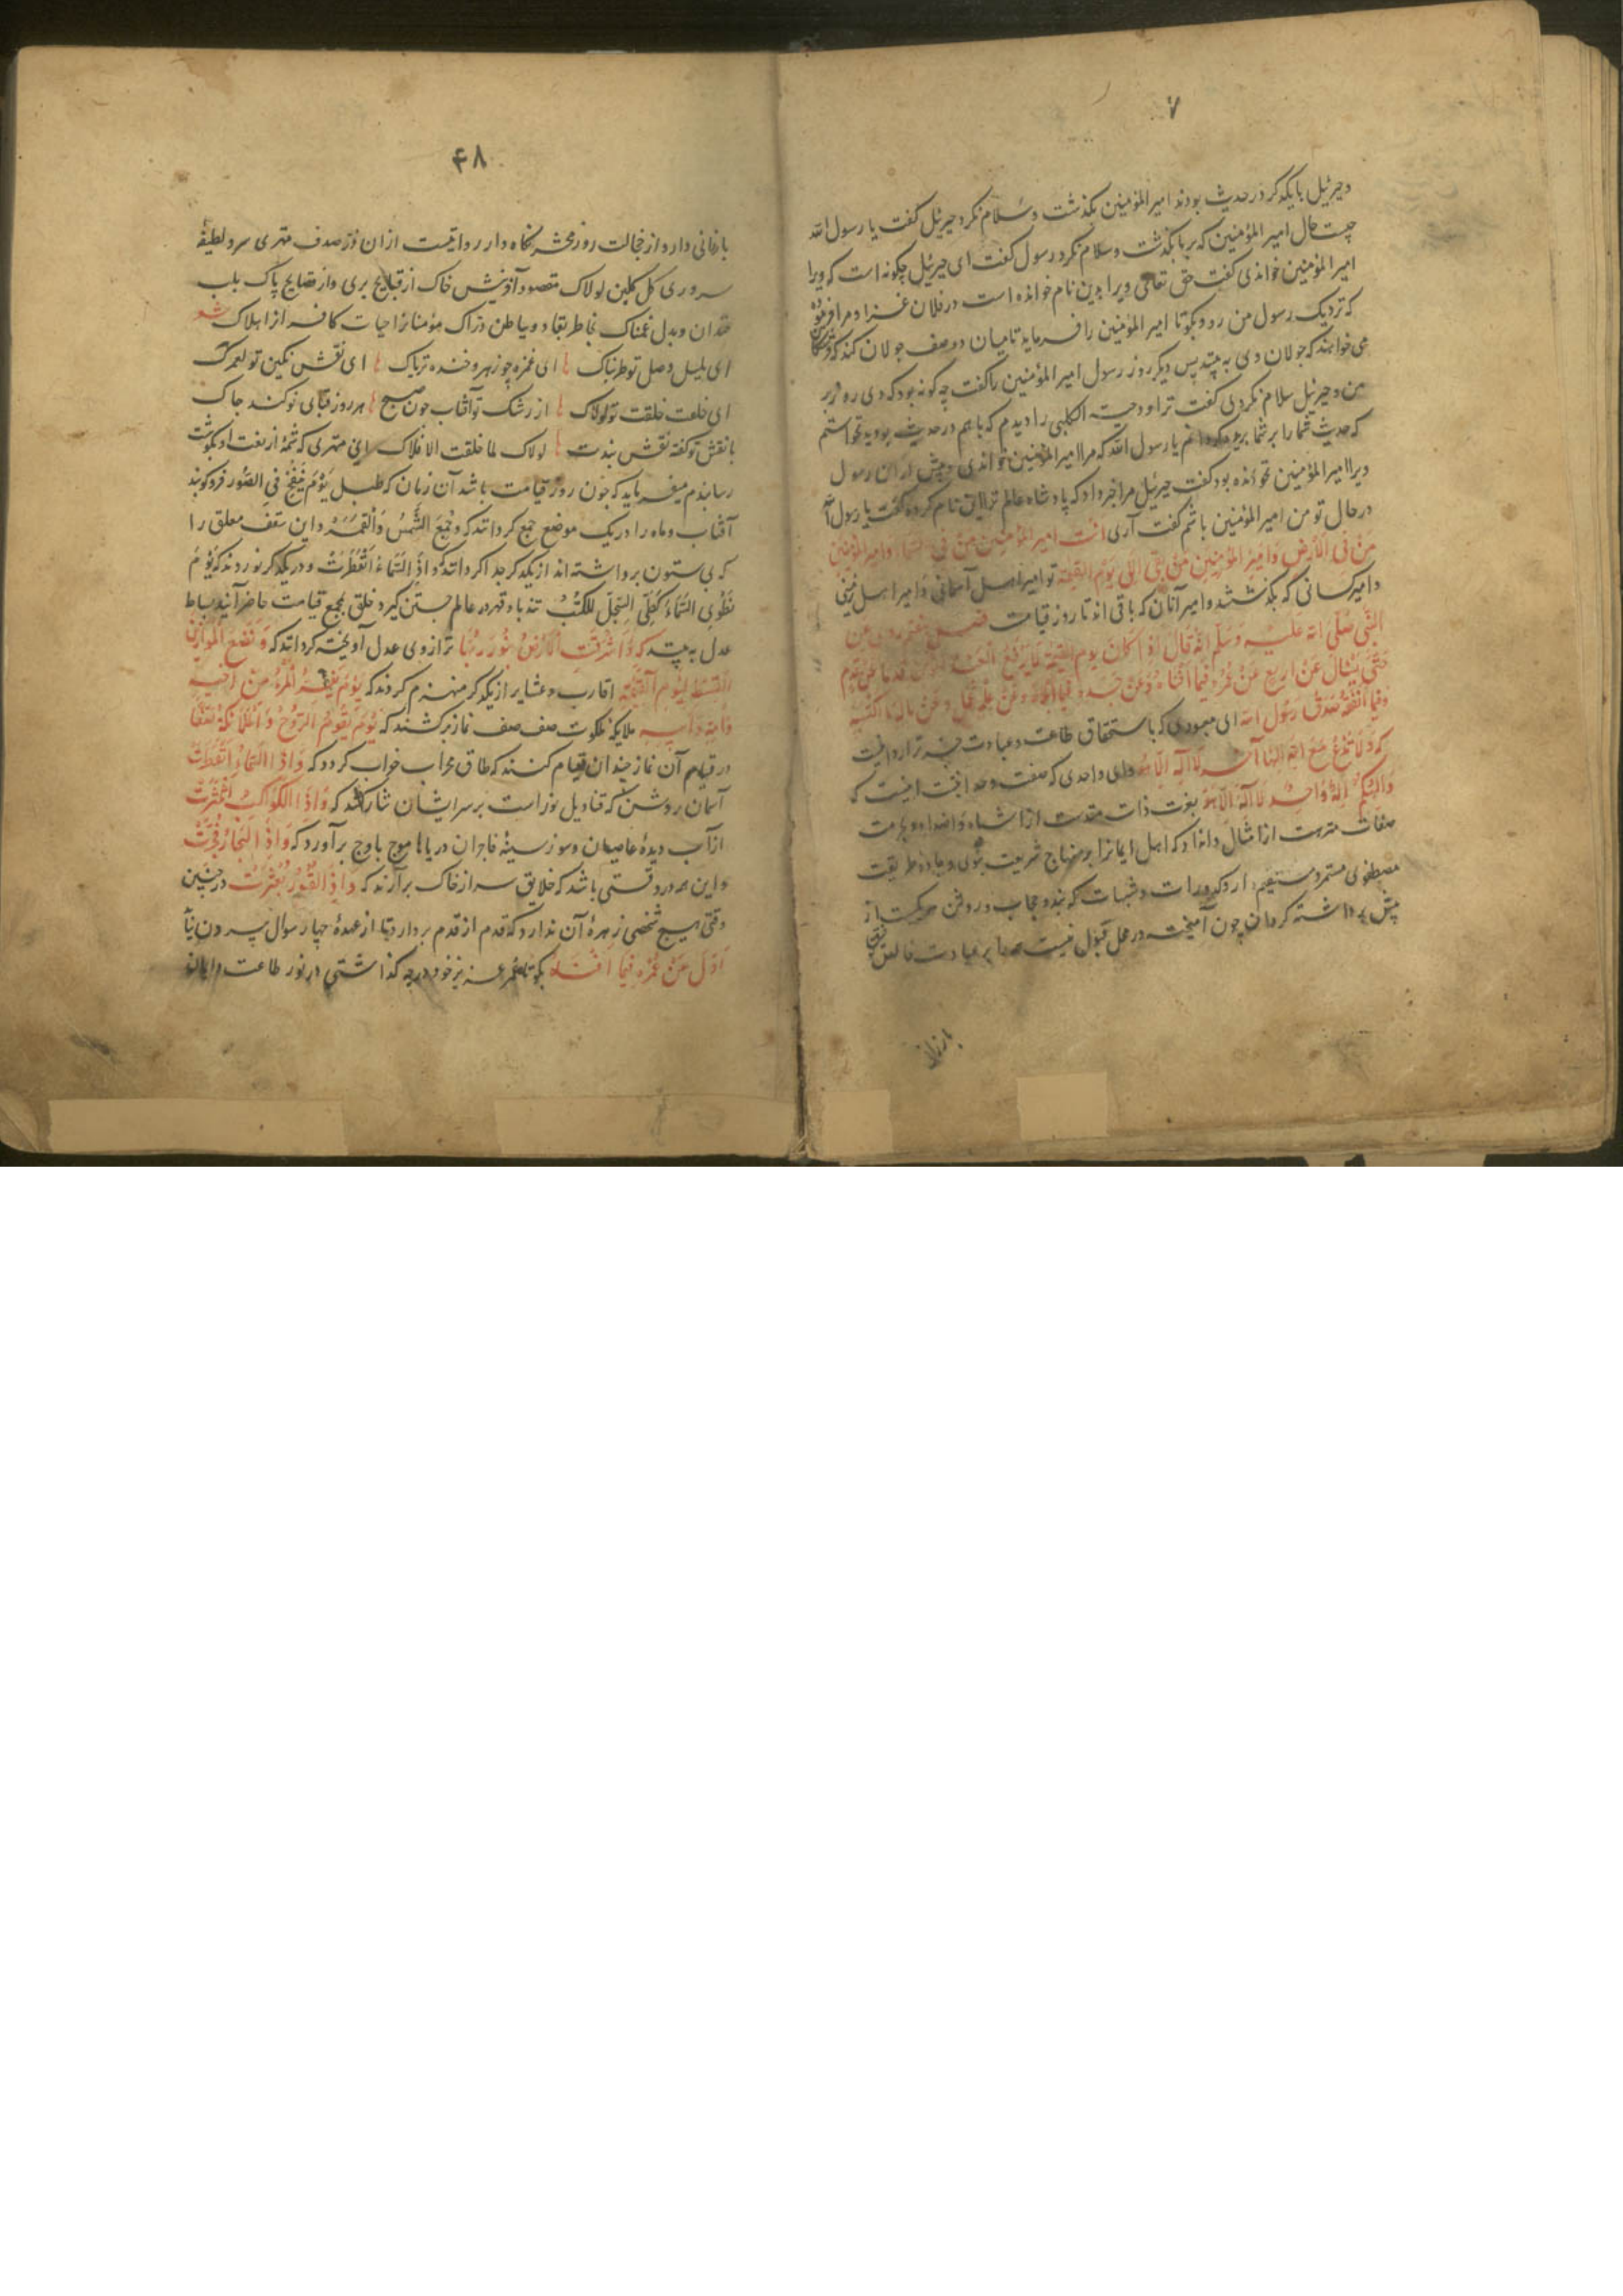 ۷
وجبرئیل با یکدکر در حدیث بودند امیر المؤمنین بکذشت وسلام نکرد جبرئیل کفت یا رسول الله
چیست حال امیر المؤمنین که بر ما بکذشت وسلام نکرد رسول کفت ای جبرئیل چکونه است که ویرا
امیر المؤمنین خواندی کفت حق تعالی ویرا بدین نام خوانده است در فلان غزا ومرا فرموده
که نزدیک رسول من رو وبکو تا امیر المؤمنین را فرماید تا میان دو صف جولان کند که
می خواهند که جولان وی به بینند پس دیکر روز رسول امیر المؤمنین را کفت چه کونه بود که دی روز بر
من وجبرئیل سلام نکردی کفت ترا ودحیة الکلبی را دیدم که با هم در حدیث بودید نخواستم
که حدیث شما را بر شما یا رسول الله که مرا امیر المؤمنین خواندی وپیش از ان رسول
ویرا امیر المؤمنین نخوانده بود کفت جبرئیل مرا خبر داد که پادشاه عالم ترا این نام کرده کفت یا رسول الله
در حال تو من امیر المؤمنین باشم کفت آری انت امیر المؤمنین من فی السماء وامیر المؤمنین
من فی الارض وامیر المؤمنین من بقی الی یوم القیمة تو امیر اهل آسمانی وامیر اهل زمینی
وامیر کسانی که بکذشتند وامیر آنان که باقی اند تا روز قیامت
النبی صلی الله علیه وسلم انه قال اذا کان یوم القیمة
حتی یسال عن اربع عن عمره فیما افناه وعن جسده فیما وعن علمه وعن ماله مما اکتسبه
وفیما انفقه صدق رسول الله ای معبودی که باستحقاق طاعت وعبادت
که ولا تدع مع الله الها آخر لا اله الا هو وای واحدی که صفت
والهکم اله واحد لا اله الا هو بعزت ذات مقدست از اشباه واضداد وبحرمت
صفات منزهت از امثال وانداد که اهل ایمانرا بر منهاج شریعت نبوی وجاده طریقت
مصطفوی مستمر ومستقیم دار وکدورات وشبهات که
پیش برداشته کردان چون آمیخته در محل قبول نیست
۴۸
بارزانی دار واز خجالت روز محشر نکاه دار
سروری کل کلبن لولاک مقصود آفرینش خاک از قبایح بری واز فضایح پاک بلب
خندان وبدل غمناک بخاطر نقاد وبباطن دراک مؤمنانرا حیات کافرانرا هلاک شعر
ای بلبل وصل تو طربناک ای غمزه چو زهر وخنده تریاک ای نقش نکین تو لعمرک
ای خلعت خلقت تو لولاک از رشک تو آفتاب چون صبح هر روز قبای نو کند چاک
با نقش تو کفته نقش بندت لولاک لما خلقت الافلاک این مهتری که شمهٔ از نعت او بکوشت
رسانیدم میفرماید که چون روز قیامت باشد آن زمان که طبل یوم ینفخ فی الصور فروکوبند
آفتاب وماه را در یک موضع جمع کردانند که وجمع الشمس والقمر واین سقف معلق را
که بی ستون برداشته اند از یکدکر جدا کردانند که واذا السماء انفطرت ودر یکدکر نوردند که یوم
نطوی السماء کطی السجل للکتب تند باد قهر در عالم جستن کیرد خلق بمجمع قیامت حاضر آیند بساط
عدل به بینند که واشرقت الارض بنور ربها ترازوی عدل آویخته کردانند که ونضع الموازین
القسط لیوم القیمة اقارب وعشایر از یکدکر منهزم کردند که یوم یفر المرء من اخیه
وامه وابیه ملایکهٔ ملکوت صف صف نماز برکشند که یوم یقوم الروح والملائکة صفا
در قیام آن نماز چندان قیام کنند که طاق محراب خواب کردد که واذا السماء انفطرت
آسمان روشن که قنادیل نوراست بر سر ایشان نثار کند که واذا الکواکب انتثرت
از آب دیدهٔ عاصیان وسوز سینهٔ فاجران دریاها موج باوج برآورد که واذا البحار فجرت
واین همه در وقتی باشد که خلایق سر از خاک برآرند که واذا القبور بعثرت در چنین
وقتی هیچ شخصی زهرهٔ آن ندارد که قدم از قدم بردارد تا از عهدهٔ چهار سوال بیرون نیاید
اول عن عمره فیما افناه بکو تا عمر عزیز خود در چه کذاشتی در نور طاعت وایمان